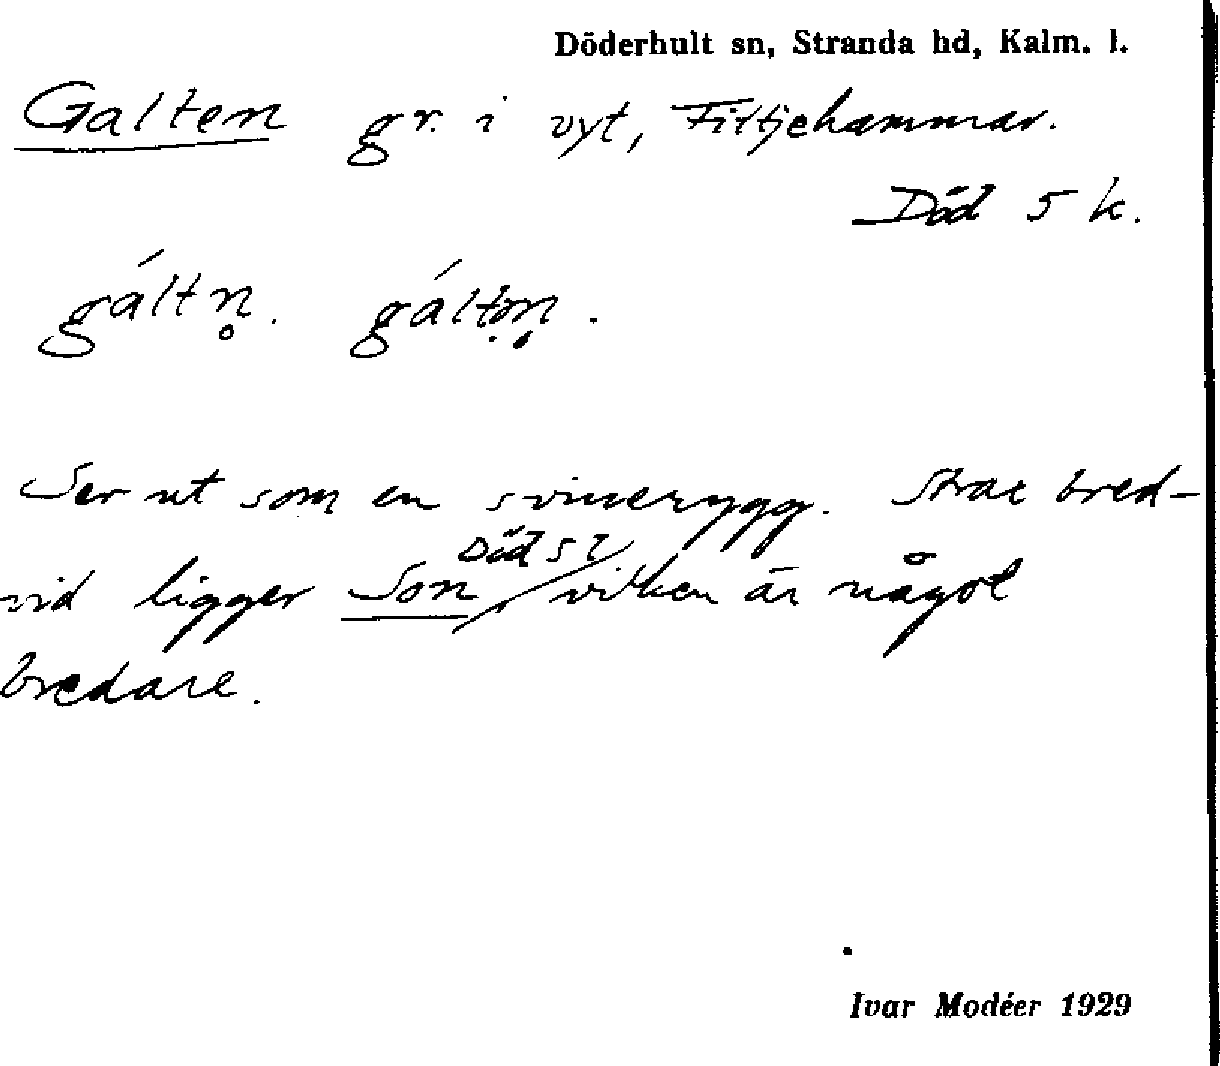 Döderhult sn, Stranda hd, Kalm. l.
Galten gr. i vyt, Fittjehammar.
Död 5 k.
gált n̥. gálton.
Ser ut som en svinerygg. Strax bred-
Död 5 l
vid ligger Son, vilken är något
bredare.
Ivar Modéer 1929